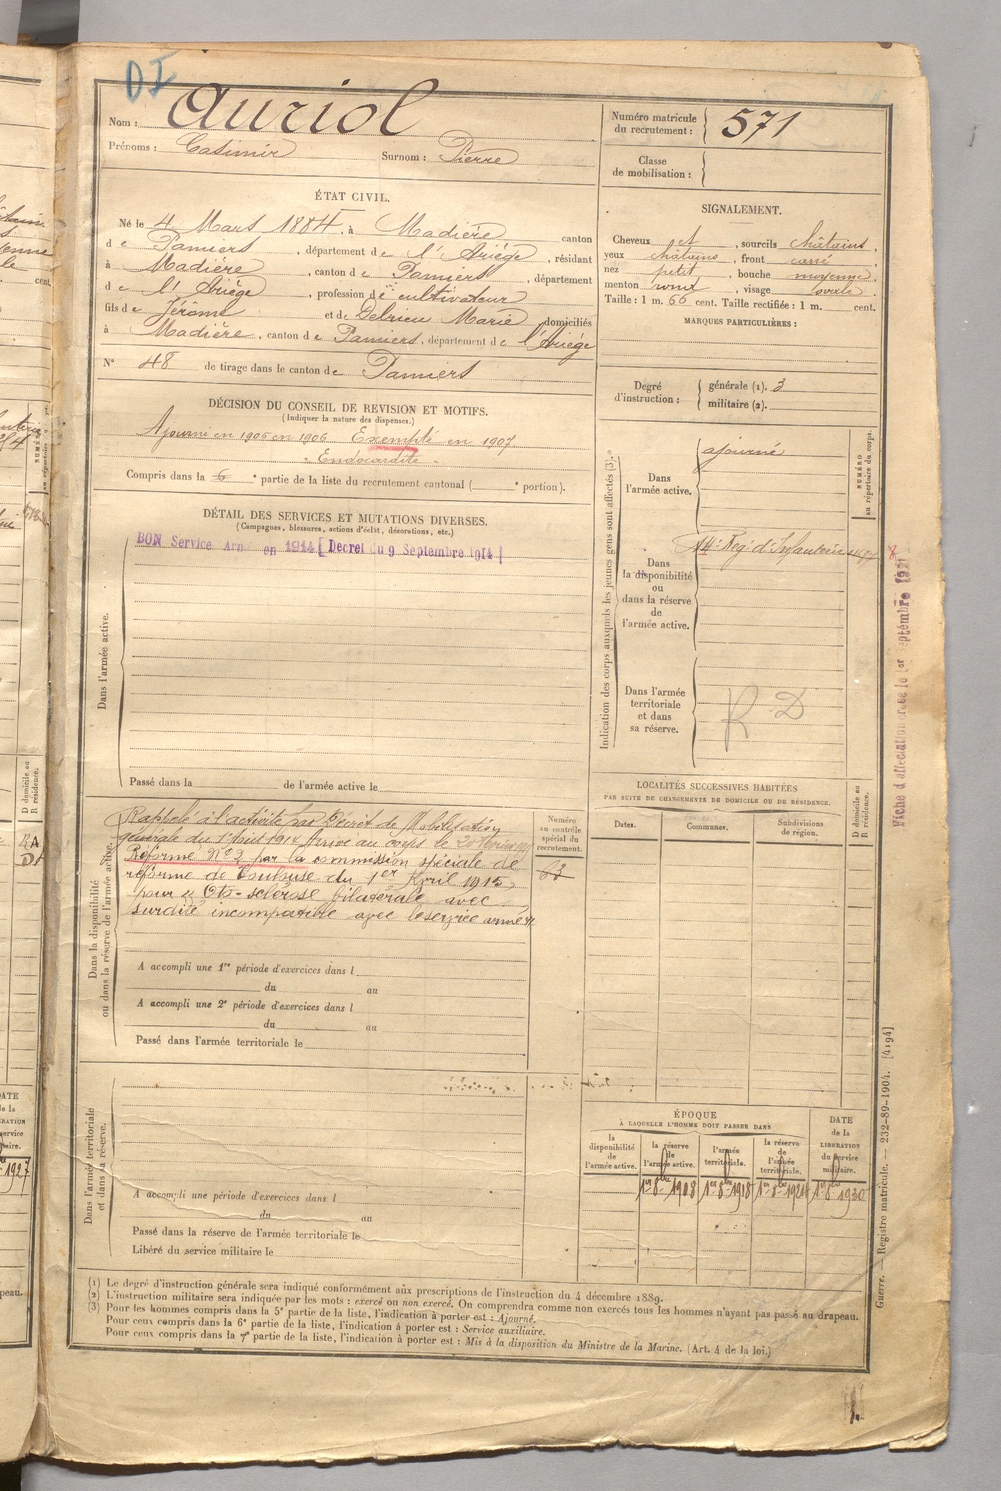 DI
Nom : Auriol
Prénoms : Casimir Surnom : Pierre
Numéro matricule du recrutement : 571
Classe de mobilisation :
ÉTAT CIVIL.
Né le 4 Mars 1884, à Madière canton
de Pamiers, département de l'Ariège, résidant
à Madière, canton de Pamiers, département
de l'Ariège, profession de cultivateur
fils de Jérôme et de Delrieu Marie domiciliés
à Madière, canton de Pamiers, département de l'Ariège
N° 48 de tirage dans le canton de Pamiers
SIGNALEMENT.
Cheveux et, sourcils châtains.
yeux châtains, front carré
nez petit, bouche moyenne,
menton rond, visage ovale.
Taille : 1 m. 66 cent. Taille rectifiée : 1 m. cent.
MARQUES PARTICULIÈRES :
Degré d'instruction : générale (1). 3
militaire (2).
DÉCISION DU CONSEIL DE REVISION ET MOTIFS.
(Indiquer la nature des dispenses.)
Ajourné en 1905 en 1906 Exempté en 1907
Endocardite
Compris dans la 6e partie de la liste du recrutement cantonal ( e portion).
DÉTAIL DES SERVICES ET MUTATIONS DIVERSES.
(Campagnes, blessures, actions d'éclat, décorations, etc.)
Dans l'armée active.
BON Service Armé en 1914 [Decret du 9 Septembre 1914]
Passé dans la de l'armée active le
Indication des corps auxquels les jeunes gens sont affectés (3).
NUMÉRO au répertoire du corps.
Dans l'armée active.
ajourné
Dans la disponibilité ou dans la réserve de l'armée active.
14e Rég. d'Infanterie
Dans l'armée territoriale et dans sa réserve.
R D
Dans la disponibilité ou dans la réserve de l'armée active.
Rappelé à l'activité par Décret de Mobilisation
générale du 1er Août 1914 Arrivé au corps le 20
Réformé N°2 par la commission spéciale de
réforme de Toulouse du 1er Avril 1915
pour « Oto-sclérose bilatérale avec
surdité incompatible avec le service armé »
Numéro au contrôle spécial du recrutement.
63
A accompli une 1re période d'exercices dans l
du au
A accompli une 2e période d'exercices dans l
du au
Passé dans l'armée territoriale le
LOCALITÉS SUCCESSIVES HABITÉES
PAR SUITE DE CHANGEMENTS DE DOMICILE OU DE RÉSIDENCE.
Dates. Communes. Subdivisions de région. D domicile ou R résidence.
Dans l'armée territoriale et dans sa réserve.
A accompli une période d'exercices dans l
du au
Passé dans la réserve de l'armée territoriale le
Libéré du service militaire le
ÉPOQUE
À LAQUELLE L'HOMME DOIT PASSER DANS
la disponibilité de l'armée active. la réserve de l'armée active. l'armée territoriale. la réserve de l'armée territoriale. DATE de la LIBÉRATION du service militaire.
1er 8bre 1908 1er 8bre 1918 1er 8bre 1930
(1) Le degré d'instruction générale sera indiqué conformément aux prescriptions de l'instruction du 4 décembre 1889.
(2) L'instruction militaire sera indiquée par les mots : exercé ou non exercé. On comprendra comme non exercés tous les hommes n'ayant pas passé au drapeau.
(3) Pour les hommes compris dans la 5e partie de la liste, l'indication à porter est : Ajourné.
Pour ceux compris dans la 6e partie de la liste, l'indication à porter est : Service auxiliaire.
Pour ceux compris dans la 7e partie de la liste, l'indication à porter est : Mis à la disposition du Ministre de la Marine. (Art. 4 de la loi.)
Guerre. — Registre matricule. — 232-89-1904. [4194]